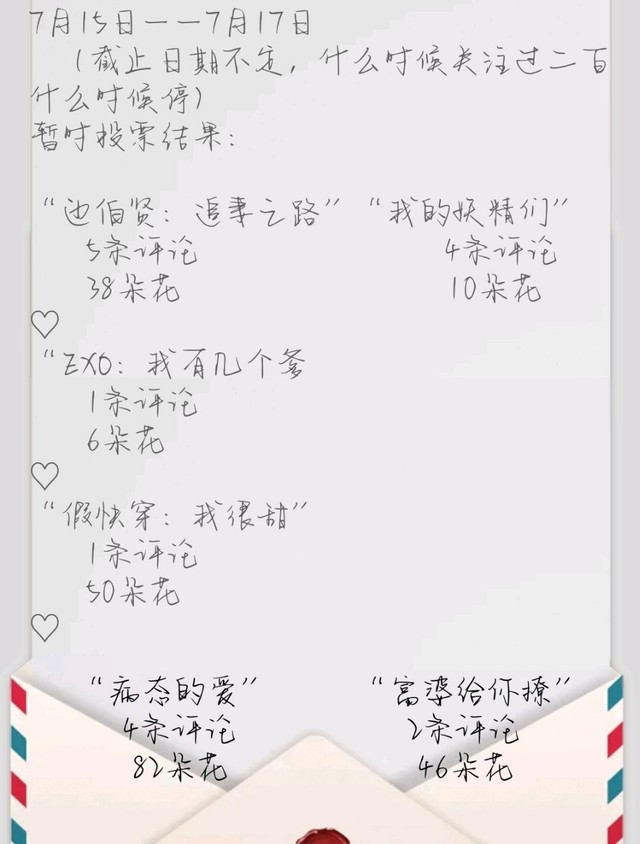 7月15日一一7月17日
(截止日期不定，什么时候关注过二百
什么时候停)
暂时投票结果：
“边伯贤：追妻之路” “我的妖精们”
5条评论 4条评论
38朵花 10朵花
♡
“EXO：我有几个爹
1条评论
6朵花
♡
“假快穿：我很甜”
1条评论
50朵花
♡
“病态的爱” “富婆给你撩”
4条评论 2条评论
82朵花 46朵花